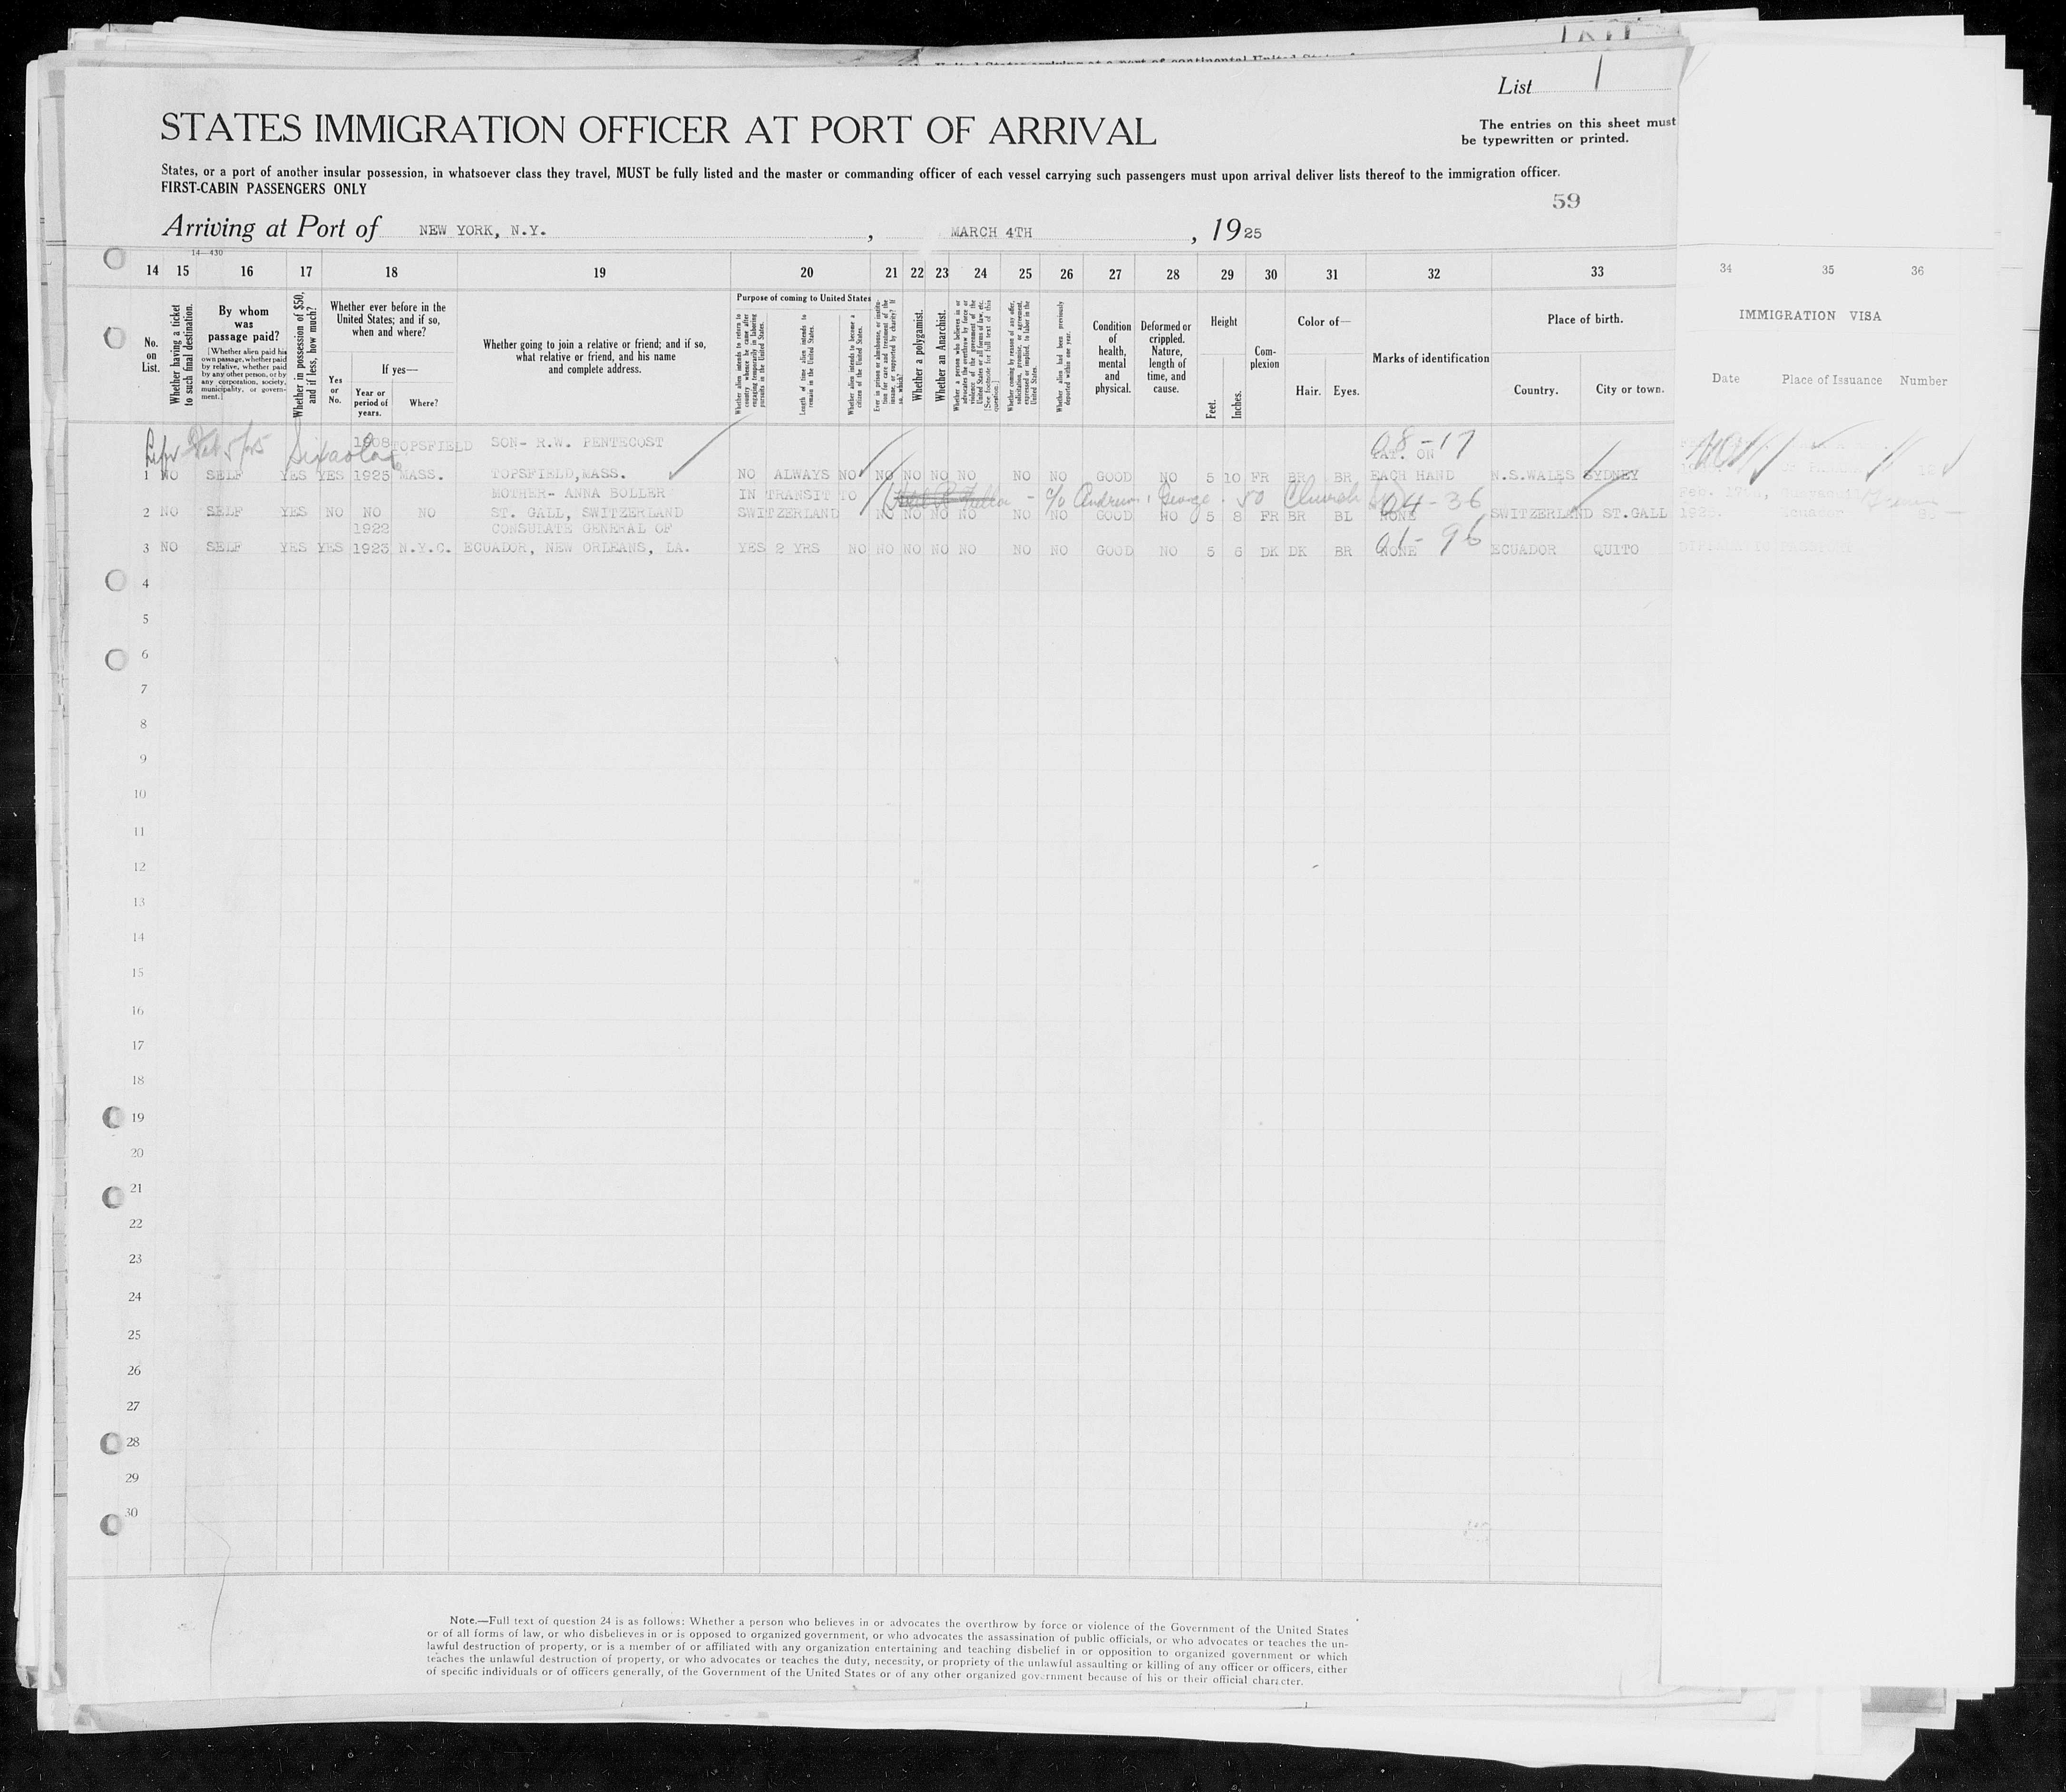 List 1
STATES IMMIGRATION OFFICER AT PORT OF ARRIVAL
The entries on this sheet must
be typewritten or printed.
States, or a port of another insular possession, in whatsoever class they travel, MUST be fully listed and the master or commanding officer of each vessel carrying such passengers must upon arrival deliver lists thereof to the immigration officer.
FIRST-CABIN PASSENGERS ONLY
59
Arriving at Port of NEW YORK, N.Y., MARCH 4TH, 1925
14—430
14 15 16 17 18 19 20 21 22 23 24 25 26 27 28 29 30 31 32 33 34 35 36
No. on List.
Whether having a ticket to such final destination.
By whom was passage paid?
[Whether alien paid his own passage, whether paid by relative, whether paid by any other person, or by any corporation, society, municipality, or government.]
Whether in possession of $50, and if less, how much?
Whether ever before in the United States; and if so, when and where?
Yes or No.
If yes—
Year or period of years.
Where?
Whether going to join a relative or friend; and if so, what relative or friend, and his name and complete address.
Purpose of coming to United States
Whether alien intends to return to country whence he came after engaging temporarily in laboring pursuits in the United States.
Length of time alien intends to remain in the United States.
Whether alien intends to become a citizen of the United States.
Ever in prison or almshouse, or institution for care and treatment of the insane, or supported by charity? If so, which?
Whether a polygamist.
Whether an Anarchist.
Whether a person who believes in or advocates the overthrow by force or violence of the government of the United States or all forms of law, etc. [See footnote for full text of this question.]
Whether coming by reason of any offer, solicitation, promise, or agreement, expressed or implied, to labor in the United States.
Whether alien had been previously deported within one year.
Condition of health, mental and physical.
Deformed or crippled. Nature, length of time, and cause.
Height
Feet.
Inches.
Complexion
Color of—
Hair. Eyes.
Marks of identification
Place of birth.
Country. City or town.
IMMIGRATION VISA
Date Place of Issuance Number
Sixaola 1908 TOPSFIELD SON- R.W. PENTECOST 08-17 TAT. ON
1 NO SELF YES YES 1925 MASS. TOPSFIELD, MASS. NO ALWAYS NO NO NO NO NO NO NO GOOD NO 5 10 FR BR BR EACH HAND N.S.WALES SYDNEY
MOTHER- ANNA BOLLER IN TRANSIT TO - c/o Andrew George 50 Church 04-36 Feb.
2 NO SELF YES NO NO NO ST. GALL, SWITZERLAND SWITZERLAND NO NO NO NO NO NO GOOD NO 5 8 FR BR BL NONE SWITZERLAND ST.GALL 1925. Ecuador
1922 CONSULATE GENERAL OF 01-96
3 NO SELF YES YES 1923 N.Y.C. ECUADOR, NEW ORLEANS, LA. YES 2 YRS NO NO NO NO NO NO NO GOOD NO 5 6 DK DK BR NONE ECUADOR QUITO DIPLOMATIC PASSPORT
4
5
6
7
8
9
10
11
12
13
14
15
16
17
18
19
20
21
22
23
24
25
26
27
28
29
30
Note.—Full text of question 24 is as follows: Whether a person who believes in or advocates the overthrow by force or violence of the Government of the United States
or of all forms of law, or who disbelieves in or is opposed to organized government, or who advocates the assassination of public officials, or who advocates or teaches the un-
lawful destruction of property, or is a member of or affiliated with any organization entertaining and teaching disbelief in or opposition to organized government or which
teaches the unlawful destruction of property, or who advocates or teaches the duty, necessity, or propriety of the unlawful assaulting or killing of any officer or officers, either
of specific individuals or of officers generally, of the Government of the United States or of any other organized government because of his or their official character.